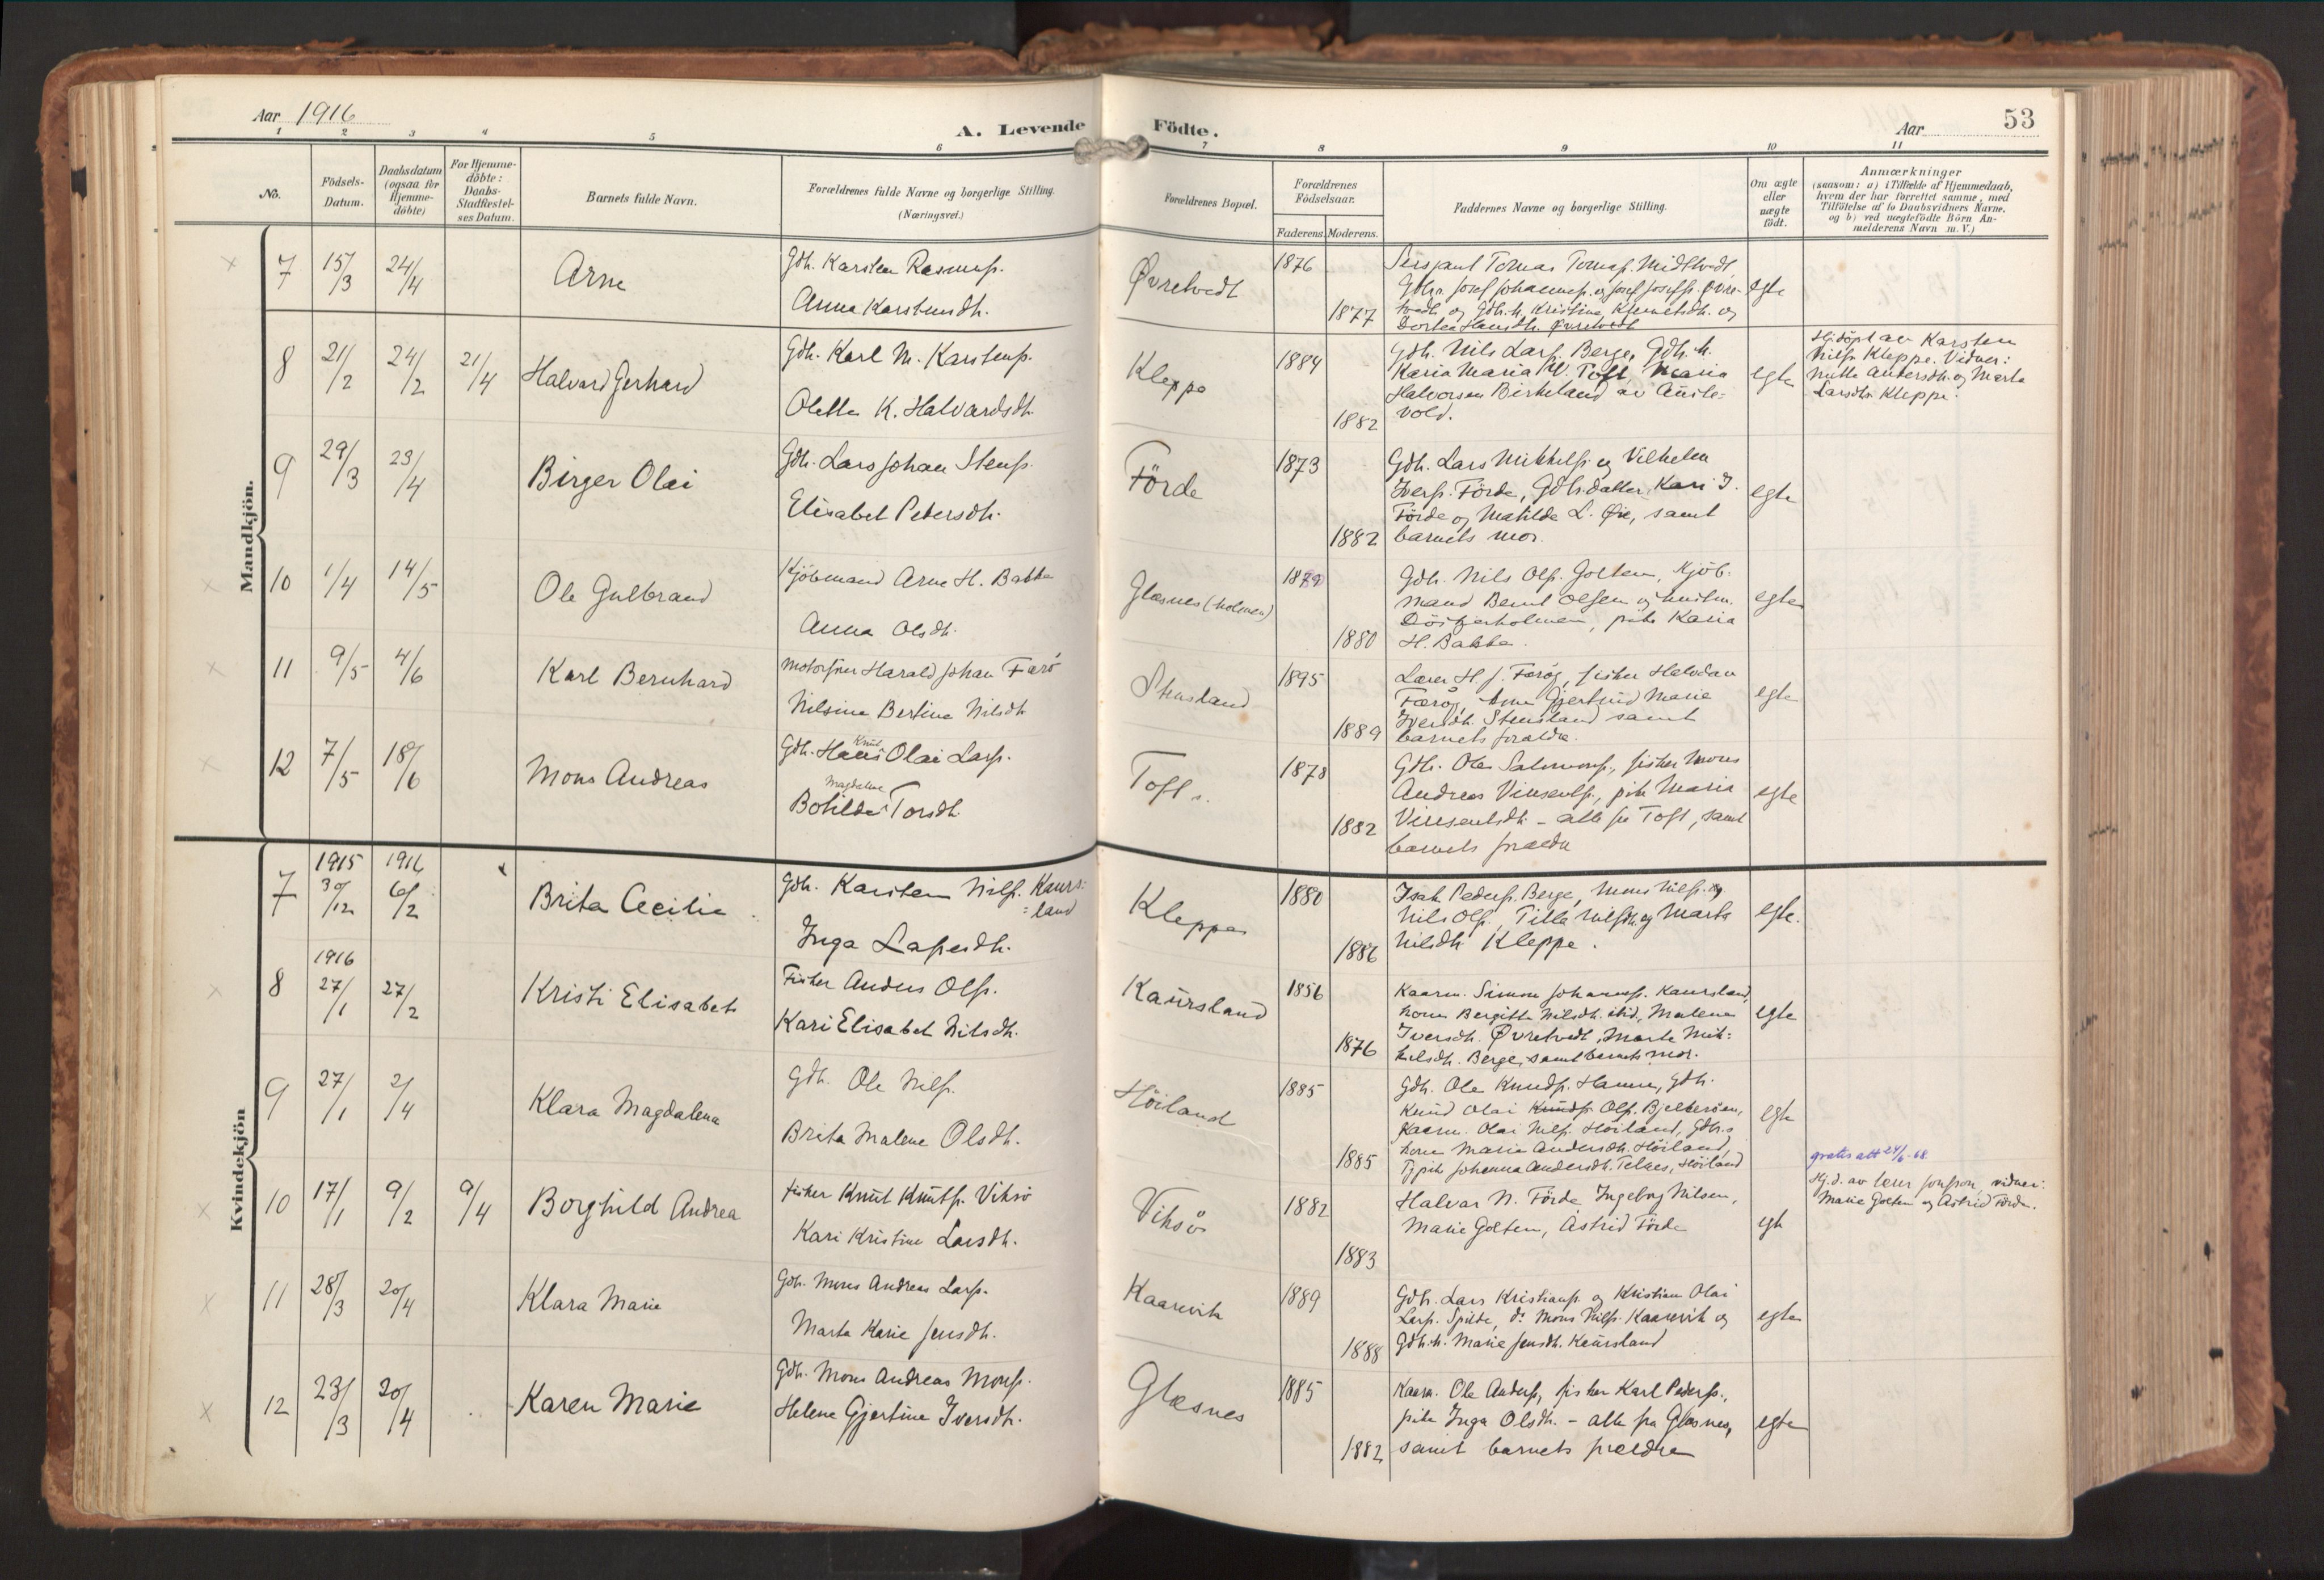 Aar 1916
A. Levende Födte.
Aar
53
1 2 3 4 5 6 7 8 9 10 11
No.
Födsels-Datum.
Daabsdatum (ogsaa for Hjemme-döbte)
For Hjemme-döbte: Daabs-Stadfæstel-ses Datum.
Barnets fulde Navn.
Forældrenes fulde Navne og borgerlige Stilling.
(Næringsvei.)
Forældrenes Bopæl.
Forældrenes Födselsaar.
Faderens. Moderens.
Faddernes Navne og borgerlige Stilling.
Om ægte eller uægte födt.
Anmærkninger
(saasom: a) i Tilfælde af Hjemmedaab,
hvem der har forrettet samme, med
Tilföielse af to Daabsvidners Navne,
og b) ved uægtefödte Börn An-
melderens Navn m. V.)
Mandkjön.
7 15/3 24/4 Arne
Gdb. Karsten Rasmuss.
Anna Karstensdtr.
Øvretvedt 1876 1877
Sersjant Tomas Tomass. Midttvedt
Gdbr. Josef Johanness. og Josef Josefss. Øvre-
tvedt og Gdb.h. Kristine Klemetsdtr. og
Dortea Hansdtr. Øvretvedt
egte
8 21/2 24/2 21/4 Halvard Gerhard
Gdb. Karl M. Karstens.
Olette K. Halvardsdtr.
Kleppe 1884 1882
Gdb. Nils Larss. Berge, Gdb.h.
Karia Maria V. Toft Maria
Halvorsen Birkeland av Auste-
vold.
egte
Hj.döpt av Karsten
Nilss. Kleppe. Vidner:
Nille Andersdtr. og Marta
Larsdtr. Kleppe.
9 29/3 23/4 Birger Olai
Gdb. Lars Johan Stens.
Elisabet Petersdtr.
Förde 1873 1882
Gdb. Lars Mikkels. og Vilhelm
Ivers. Förde, Gdb.datter Kari I.
Förde og Matilde L. Øie, samt
barnets mor.
egte
10 1/4 14/5 Ole Gulbrand
Kjöbmand Arne H. Bakke
Anna Olsdtr.
Glæsnes (holmen) 1879 1880
Gdb. Nils Ols. Golten, Kjöb-
mand Bernt Olsen og hustru
Dösjerholmen, pike Karia
H. Bakke.
egte
11 9/5 4/6 Karl Bernhard
Motorfører Harald Johan Færö
Nilsine Bertine Nilsdtr
Stensland 1895 1889
Lærer H. J. Færöy, fisker Halvdan
Færöy, Anne Gjertrud Marie
Iversdtr. Stensland samt
barnets forældre.
egte
12 7/5 18/6 Mons Andreas
Gdb. Hans Knut Olai Larss.
Botilde Magdalene Torsdtr.
Toft 1878 1882
Gdb. Ole Salomons., fisker Mons
Andreas Vinsents., pike Maria
Vinsentsdtr – alle fra Toft, samt
barnets forældre
egte
Kvindekjön
7 1915 30/12 1916 6/2 Brita Cecilie
Gdb. Karsten Nilss. Kaurs-
land
Inga Lassesdtr.
Kleppe 1880 1886
Isak Peders. Berge, Mons Nilss. og
Nils Ols., Tilla Nilsdtr. og Marta
Nilsdtr Kleppe.
egte.
8 1916 27/1 27/2 Kristi Elisabet
Fisker Anders Ols.
Kari Elisabet Nilsdtr.
Kaursland 1856 1876
Kaarm. Simon Johanness. Kaursland,
kone Bergitte Nilsdtr. ibid, Malene
Iversdtr. Øvretvedt, Marte Mik-
kelsdtr. Berge, samt barnets mor.
egte
9 27/1 2/4 Klara Magdalena
Gdb. Ole Nilss.
Brita Malene Olsdtr.
Höiland 1885 1885
Gdb. Ole Knuds. Hamre, Gdb.
Knud Olai Knuds. Ols. Bjelkeröen,
Kaarm. Olai Nilss. Höiland, Gdb.s
kone Marie Andersdtr. Höiland,
Tj.pike Johanna Andersdtr. Telnes, Höiland
egte
10 17/1 9/2 9/4 Borghild Andrea
Fisker Knut Knuts. Viksö
Kari Kristine Larsdtr.
Viksö 1882 1883
Halvar N. Förde, Ingeborg Nilsen,
Marie Golten, Astrid Förde
egte
gratis att 24/6-68
Hj.d. av lærer Jonsson, vidner:
Marie Golten og Astrid Förde.
11 28/3 20/4 Klara Marie
Gdb. Mons Andreas Larss.
Marta Karie Jensdtr.
Kaarevik 1889 1888
Gdb. Lars Kristians. og Kristian Olai
Larss. Spilde, do Mons Nilss. Kaarevik og
Gdb.h. Marie Jensdtr. Kaursland
egte
12 23/3 20/4 Karen Marie
Gdb. Mons Andreas Monss.
Helene Gjertine Iversdtr.
Glæsnes 1885 1882
Kaarm. Ole Anders., fisker Karl Peders.,
pike Inga Olsdtr. – alle fra Glæsnes,
samt barnets forældre
egte